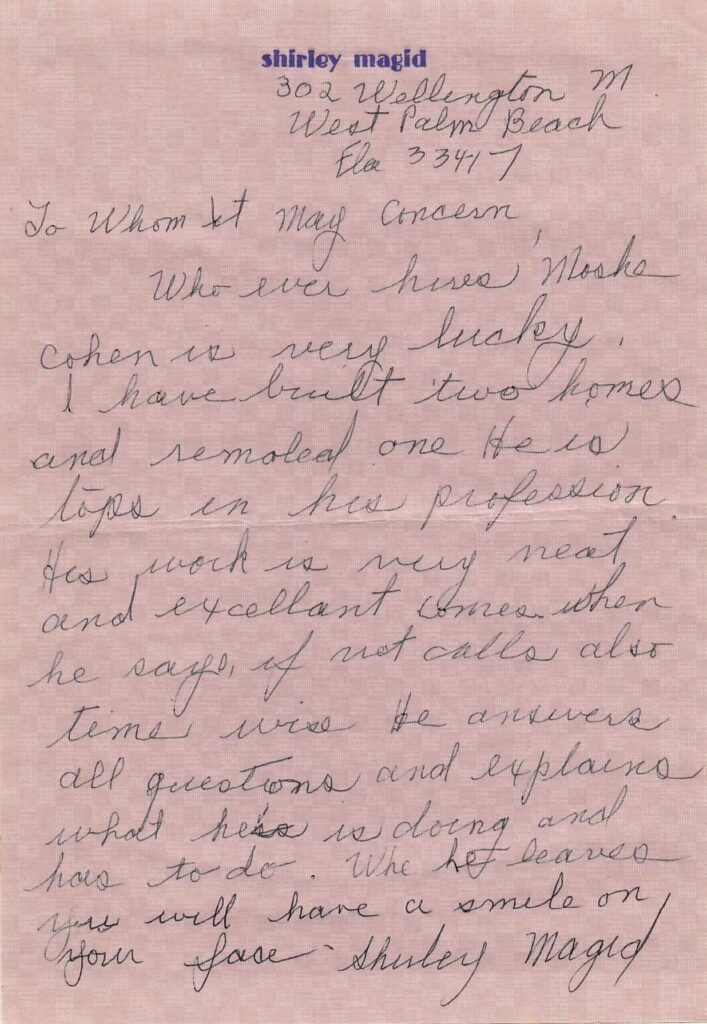 shirley magid
302 Wellington M
West Palm Beach
Fla 33417
To Whom It May Concern,
Who ever hires Moshe
Cohen is very lucky.
I have built two homes
and remoled one He is
tops in his profession.
His work is very neat
and excellant comes when
he says, if not calls also
time wise He answers
all questions and explains
what he is doing and
has to do. Whe he leaves
you will have a smile on
your face - Shirley Magid